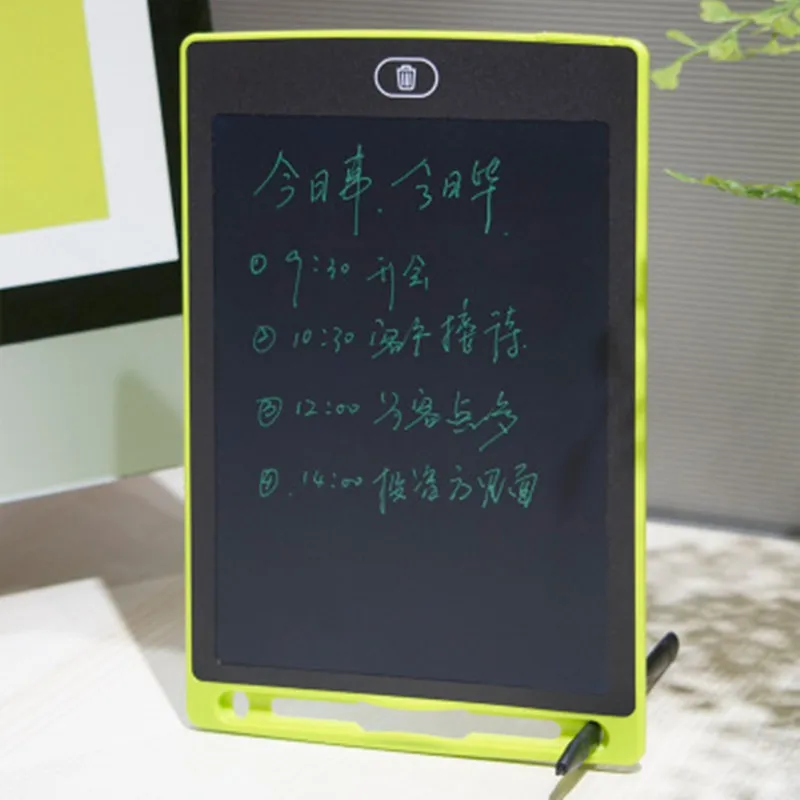 今日事,今日毕.
① 9:30 开会
② 10:30 客户接待
③ 12:00 客点
④ 14:00 投资方见面